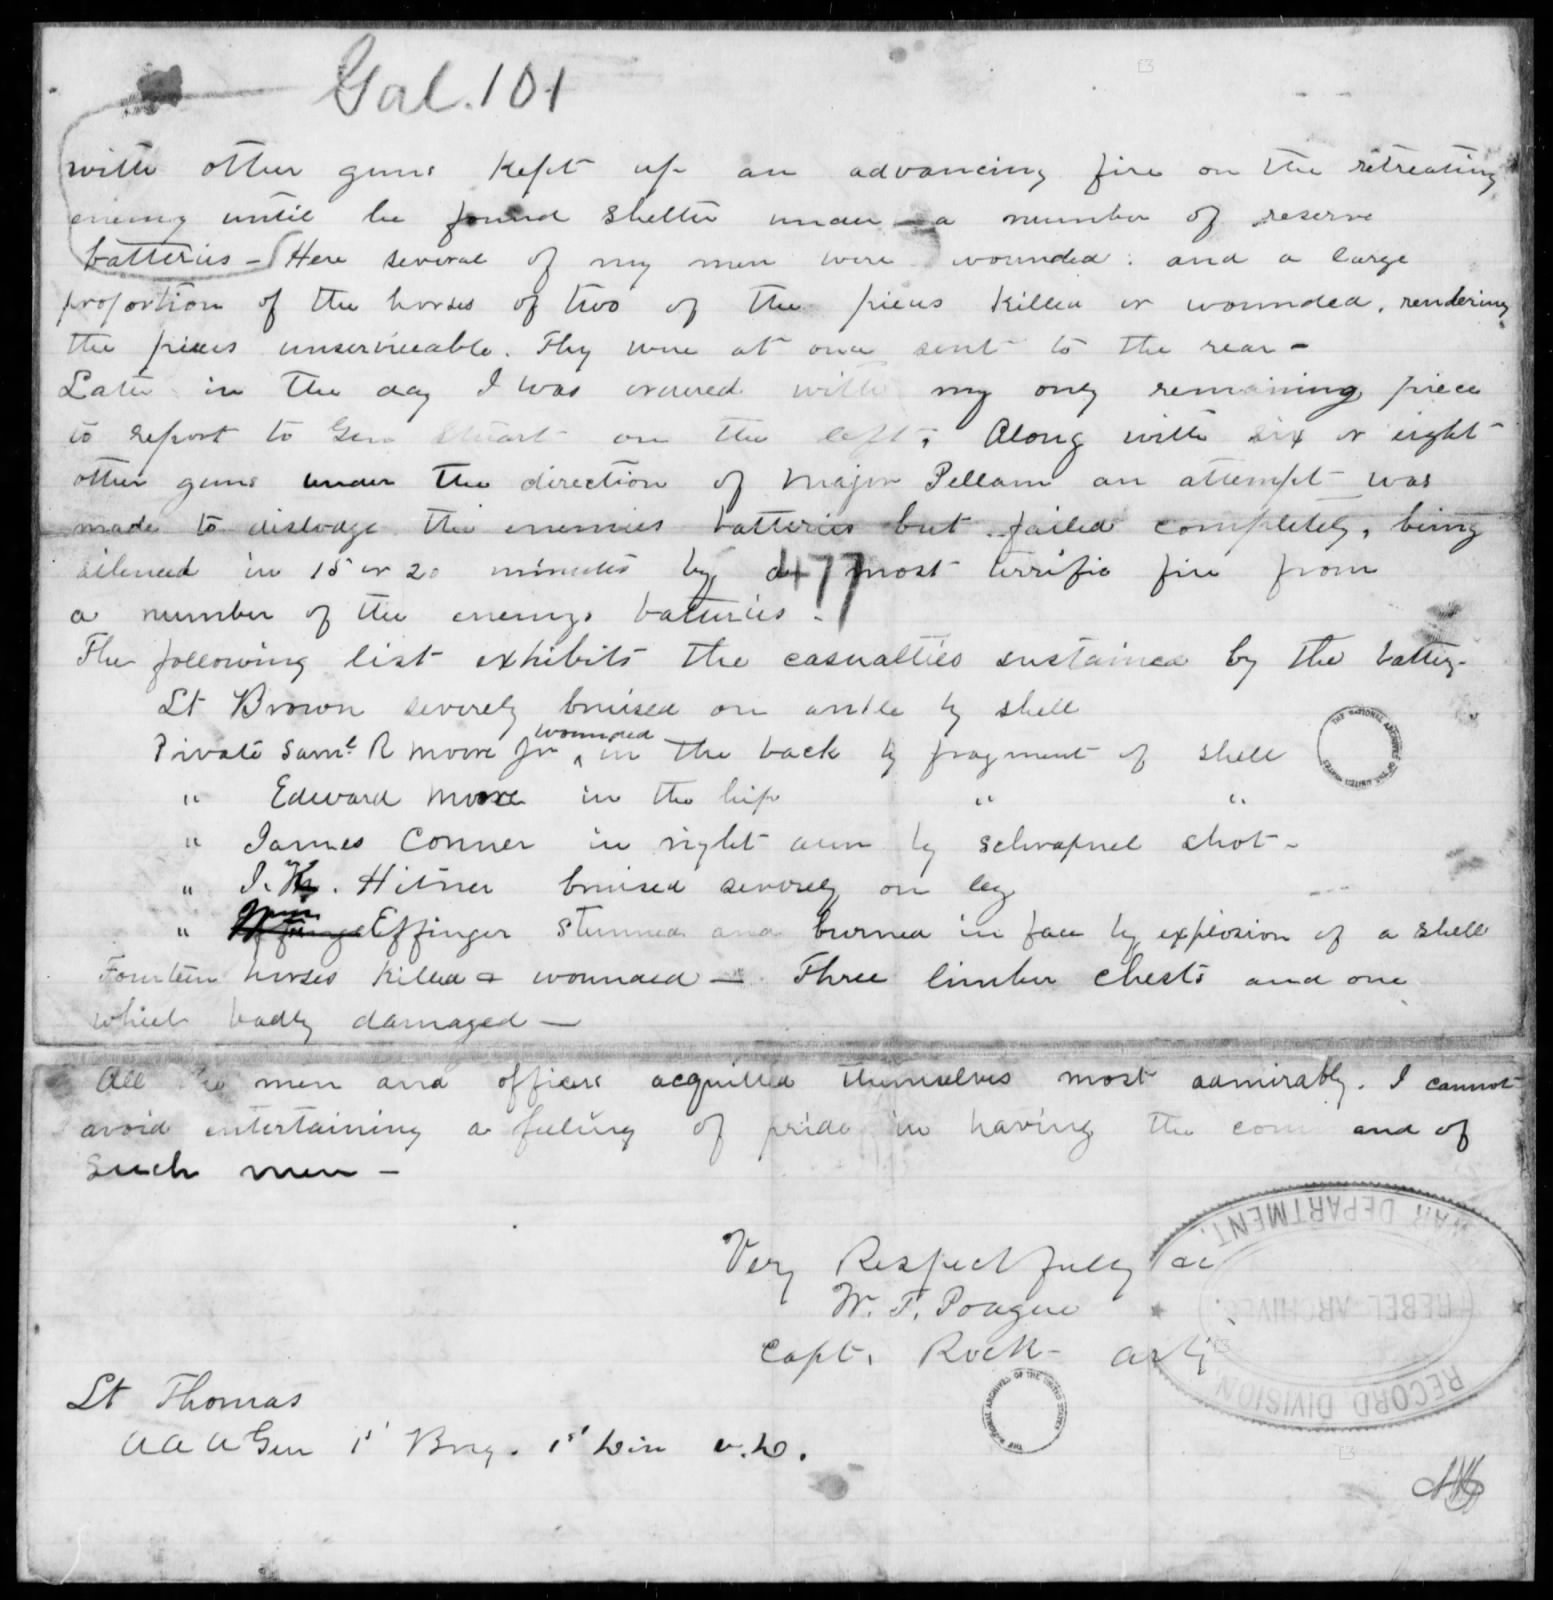 Gal. 101
with other guns kept up an advancing fire on the retreating
enemy until he found shelter under a number of reserve
batteries - Here several of my men were wounded: and a large
proportion of the horses of two of the pieces killed or wounded, rendering
the pieces unserviceable. They were at once sent to the rear -
Later in the day I was ordered with my only remaining piece
to report to Gen Stuart on the left. Along with six or eight
other guns under the direction of Major Pellam an attempt was
made to dislodge the enemies batteries but failed completely, being
silenced in 15 or 20 minutes by a most terrific fire from
477
a number of the enemys batteries.
The following list exhibits the casualties sustained by the battery-
Lt Brown severely bruised on ankle by shell
Private Saml R Moore Jr wounded in the back by fragment of shell
" Edward Moore in the hip " "
" James Conner in right arm by schrapnel shot -
" J. H. Hitner bruised severely on leg
" Effinger stunned and burned in face by explosion of a shell
Fourteen horses killed & wounded - Three limber chests and one
wheel badly damaged -
All the men and officers acquitted themselves most admirably. I cannot
avoid entertaining a feeling of pride in having the command of
such men -
Very Respectfully &c
W. T. Poague
Capt. Rock- Arty
Lt Thomas
A A A Gen 1st Brig. 1st Div V.D.
WAR DEPARTMENT.
REBEL ARCHIVES.
RECORD DIVISION
THE NATIONAL ARCHIVES OF THE UNITED STATES
THE NATIONAL ARCHIVES OF THE UNITED STATES